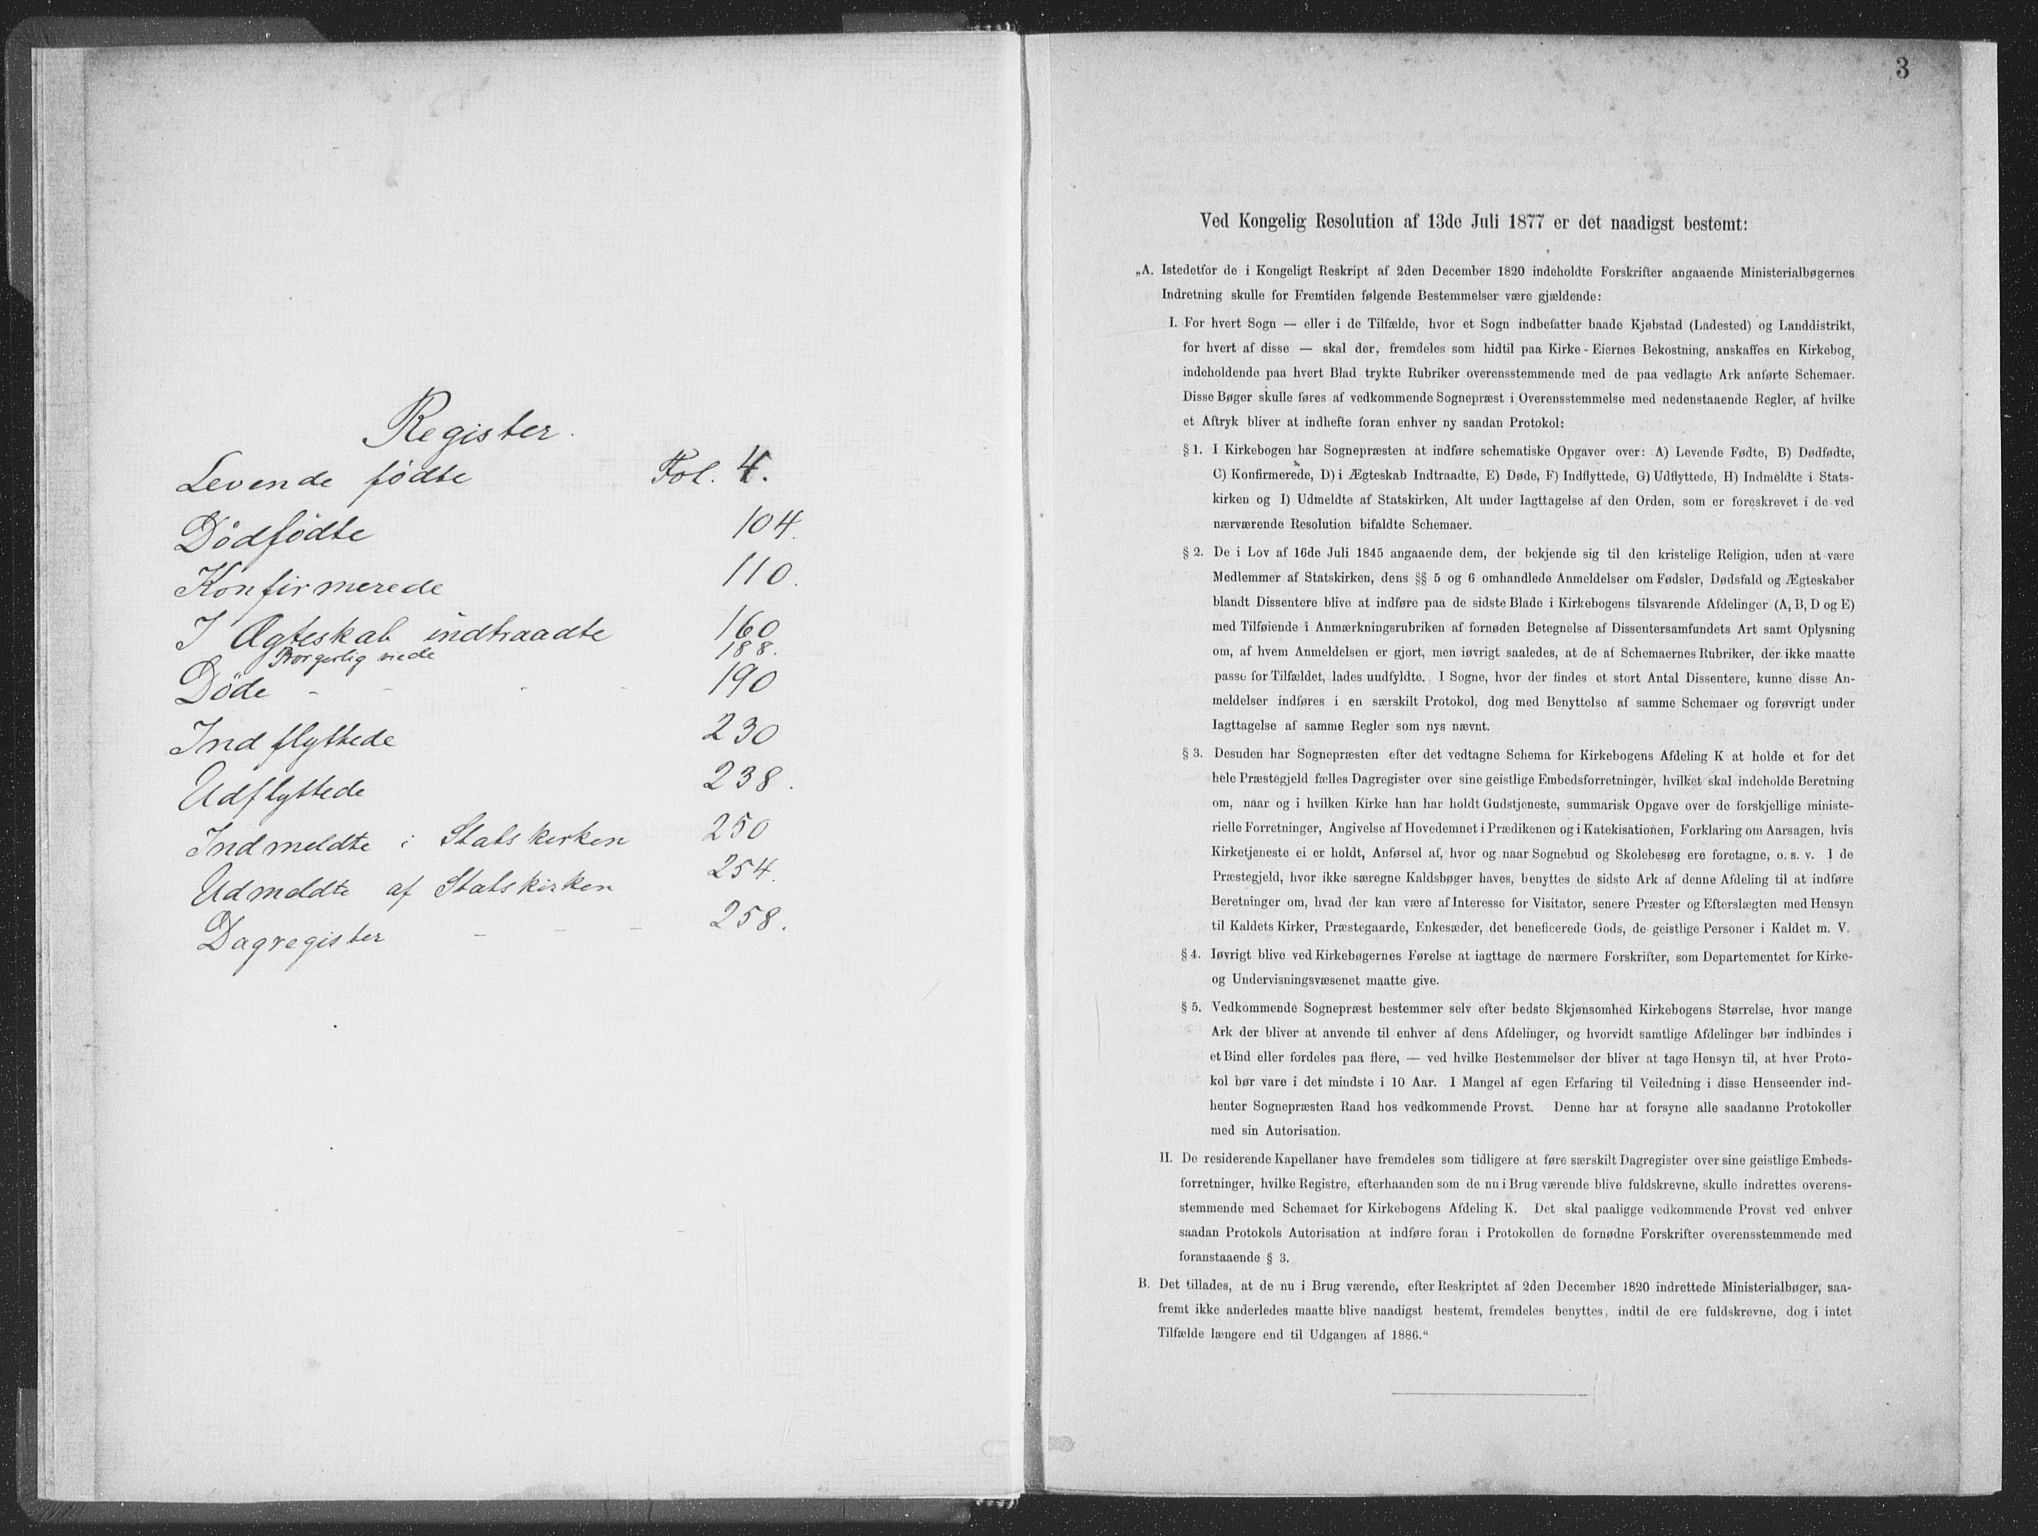 Register.
Levende fødte Fol. 4.
Dødfødte 104.
Konfirmerede 110.
I Ægteskab indtraadte 160
Borgerlig viede 188.
Døde - - - - 190
Indflyttede 230
Udflyttede 238.
Indmeldte i Statskirken 250
Udmeldte af Statskirken 254.
Dagregister - - - 258.
3
Ved Kongelig Resolution af 13de Juli 1877 er det naadigst bestemt:
„A. Istedetfor de i Kongeligt Reskript af 2den December 1820 indeholdte Forskrifter angaaende Ministerialbøgernes
Indretning skulle for Fremtiden følgende Bestemmelser være gjældende:
I. For hvert Sogn — eller i de Tilfælde, hvor et Sogn indbefatter baade Kjøbstad (Ladested) og Landdistrikt,
for hvert af disse — skal der, fremdeles som hidtil paa Kirke-Eiernes Bekostning, anskaffes en Kirkebog,
indeholdende paa hvert Blad trykte Rubriker overensstemmende med de paa vedlagte Ark anførte Schemaer.
Disse Bøger skulle føres af vedkommende Sognepræst i Overensstemmelse med nedenstaaende Regler, af hvilke
et Aftryk bliver at indhefte foran enhver ny saadan Protokol:
§ 1. I Kirkebogen har Sognepræsten at indføre schematiske Opgaver over: A) Levende Fødte, B) Dødfødte,
C) Konfirmerede, D) i Ægteskab Indtraadte, E) Døde, F) Indflyttede, G) Udflyttede, H) Indmeldte i Stats-
kirken og I) Udmeldte af Statskirken, Alt under Iagttagelse af den Orden, som er foreskrevet i de ved
nærværende Resolution bifaldte Schemaer.
§ 2. De i Lov af 16de Juli 1845 angaaende dem, der bekjende sig til den kristelige Religion, uden at være
Medlemmer af Statskirken, dens §§ 5 og 6 omhandlede Anmeldelser om Fødsler, Dødsfald og Ægteskaber
blandt Dissentere blive at indføre paa de sidste Blade i Kirkebogens tilsvarende Afdelinger (A, B, D og E)
med Tilføiende i Anmærkningsrubriken af fornøden Betegnelse af Dissentersamfundets Art samt Oplysning
om, af hvem Anmeldelsen er gjort, men iøvrigt saaledes, at de af Schemaernes Rubriker, der ikke maatte
passe for Tilfældet, lades uudfyldte. I Sogne, hvor der findes et stort Antal Dissentere, kunne disse An-
meldelser indføres i en særskilt Protokol, dog med Benyttelse af samme Schemaer og forøvrigt under
Iagttagelse af samme Regler som nys nævnt.
§ 3. Desuden har Sognepræsten efter det vedtagne Schema for Kirkebogens Afdeling K at holde et for det
hele Præstegjeld fælles Dagregister over sine geistlige Embedsforretninger, hvilket skal indeholde Beretning
om, naar og i hvilken Kirke han har holdt Gudstjeneste, summarisk Opgave over de forskjellige ministe-
rielle Forretninger, Angivelse af Hovedemnet i Prædikenen og i Katekisationen, Forklaring om Aarsagen, hvis
Kirketjeneste ei er holdt, Anførsel af, hvor og naar Sognebud og Skolebesøg ere foretagne, o. s. v. I de
Præstegjeld, hvor ikke særegne Kaldsbøger haves, benyttes de sidste Ark af denne Afdeling til at indføre
Beretninger om, hvad der kan være af Interesse for Visitator, senere Præster og Efterslægten med Hensyn
til Kaldets Kirker, Præstegaarde, Enkesæder, det beneficerede Gods, de geistlige Personer i Kaldet m. V.
§ 4. Iøvrigt blive ved Kirkebøgernes Førelse at iagttage de nærmere Forskrifter, som Departementet for Kirke-
og Undervisningsvæsenet maatte give.
§ 5. Vedkommende Sognepræst bestemmer selv efter bedste Skjønsomhed Kirkebogens Størrelse, hvor mange
Ark der bliver at anvende til enhver af dens Afdelinger, og hvorvidt samtlige Afdelinger bør indbindes i
et Bind eller fordeles paa flere, — ved hvilke Bestemmelser der bliver at tage Hensyn til, at hver Proto-
kol bør vare i det mindste i 10 Aar. I Mangel af egen Erfaring til Veiledning i disse Henseender ind-
henter Sognepræsten Raad hos vedkommende Provst. Denne har at forsyne alle saadanne Protokoller
med sin Autorisation.
II. De residerende Kapellaner have fremdeles som tidligere at føre særskilt Dagregister over sine geistlige Embeds-
forretninger, hvilke Registre, efterhaanden som de nu i Brug værende blive fuldskrevne, skulle indrettes overens-
stemmende med Schemaet for Kirkebogens Afdeling K. Det skal paaligge vedkommende Provst ved enhver
saadan Protokols Autorisation at indføre foran i Protokollen de fornødne Forskrifter overensstemmende med
foranstaaende § 3.
B. Det tillades, at de nu i Brug værende, efter Reskriptet af 2den December 1820 indrettede Ministerialbøger, saa-
fremt ikke anderledes maatte blive naadigst bestemt, fremdeles benyttes, indtil de ere fuldskrevne, dog i intet
Tilfælde længere end til Udgangen af 1886.“